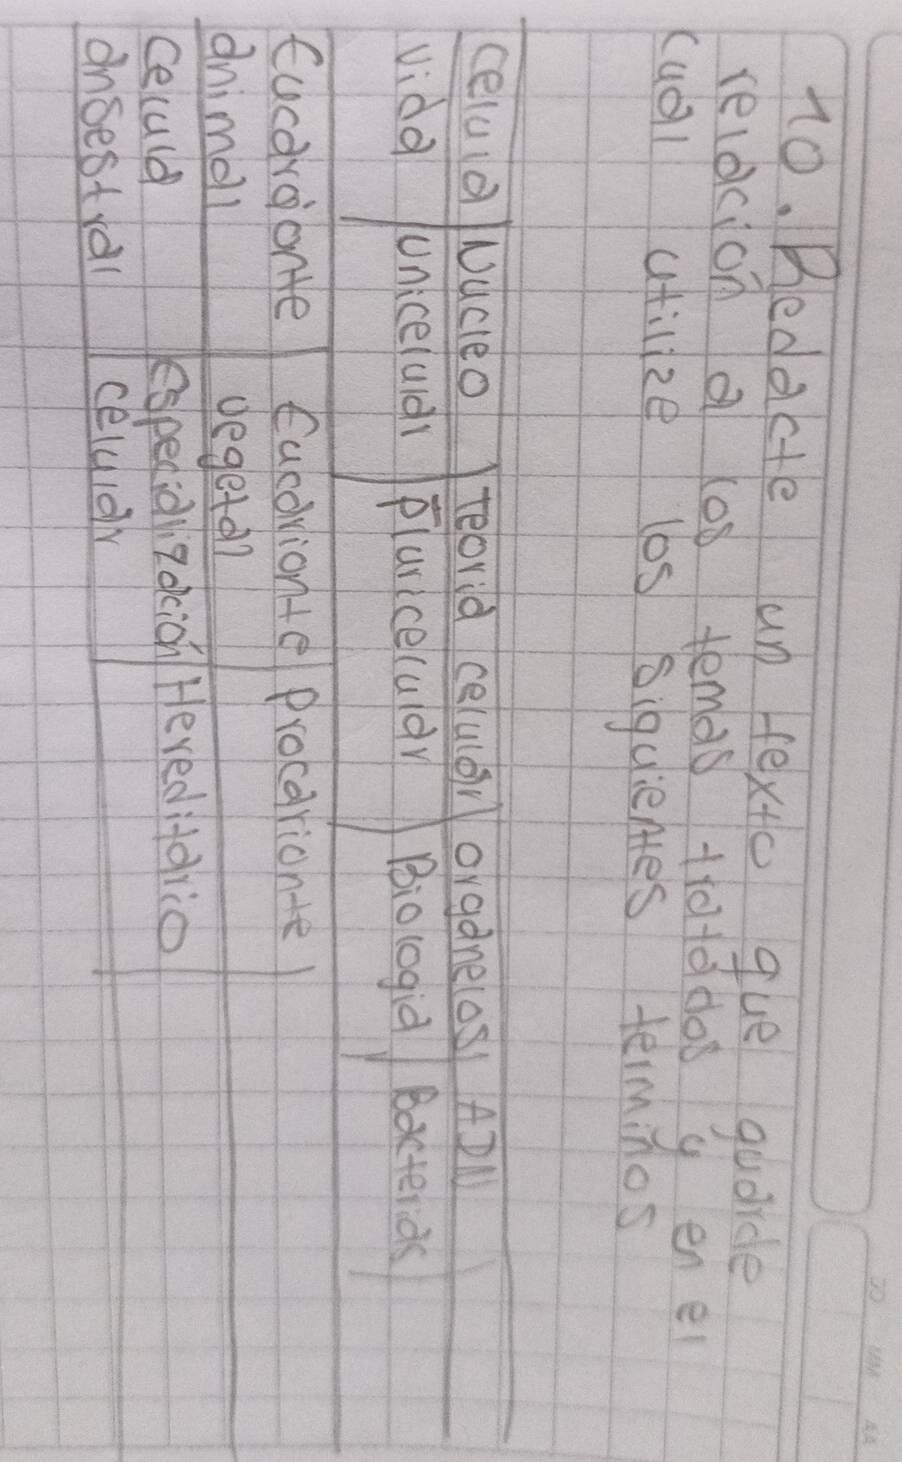 10. Redacte un texto que guarde
relación a los temas tratados y en el
cual utilize los siguientes terminos
celula Nucleo Teoria celular organelos ADN
vida unicelular pluricelular Biologia Bacterias
Eucariónte Eucarionte Procarionte
animal vegetal
celula Especialización Hereditario
ansestral celular
DD MM AA